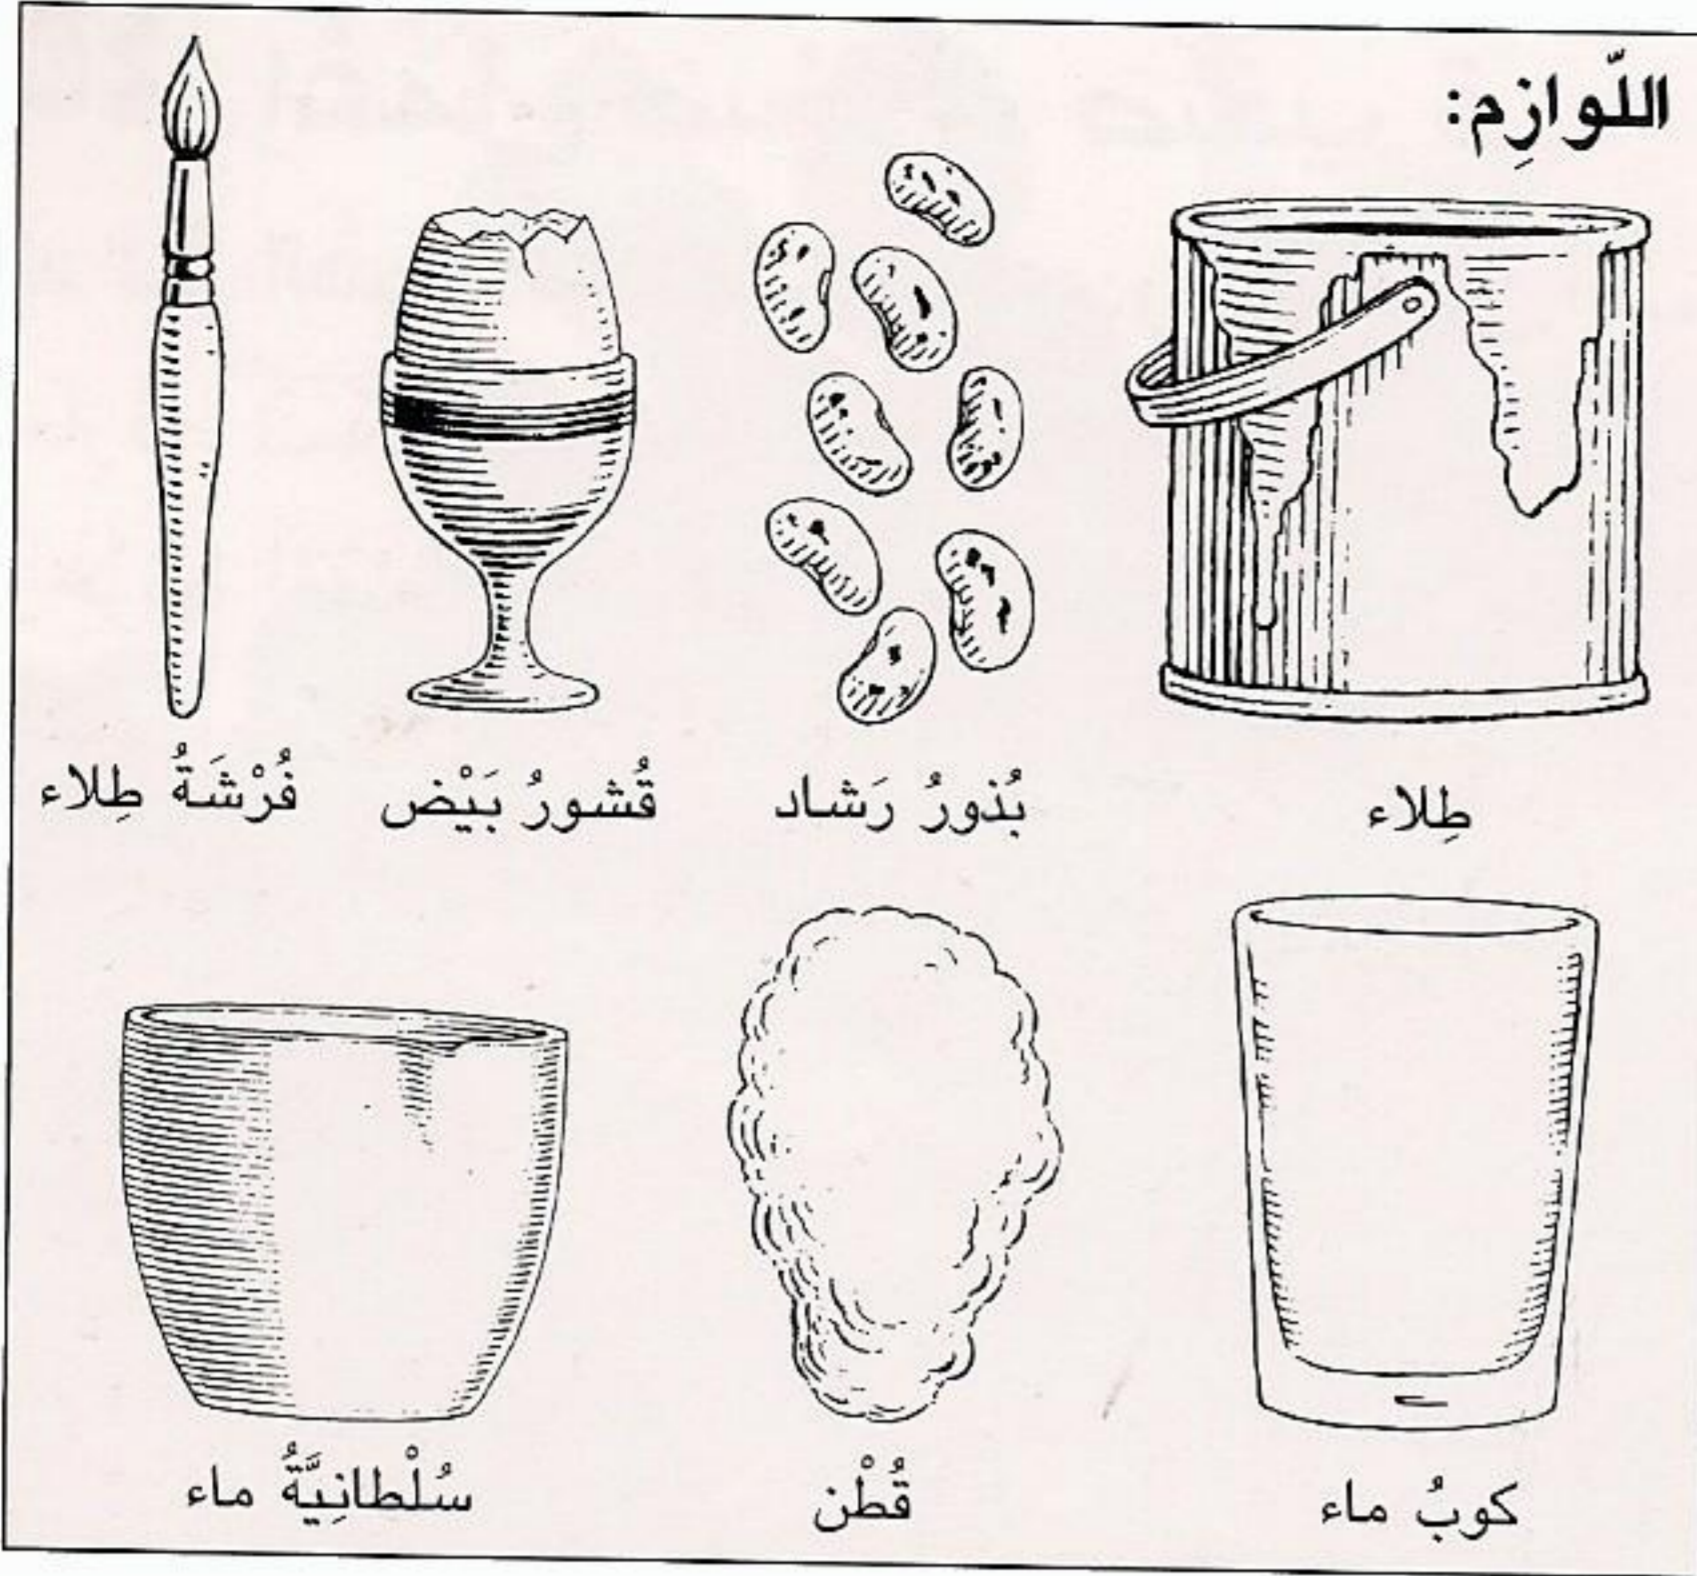 اللّوازِم:
طِلاء
بُذورُ رَشاد
قُشورُ بَيْض
فُرْشَةُ طِلاء
كوبُ ماء
قُطْن
سُلْطانِيَّةُ ماء